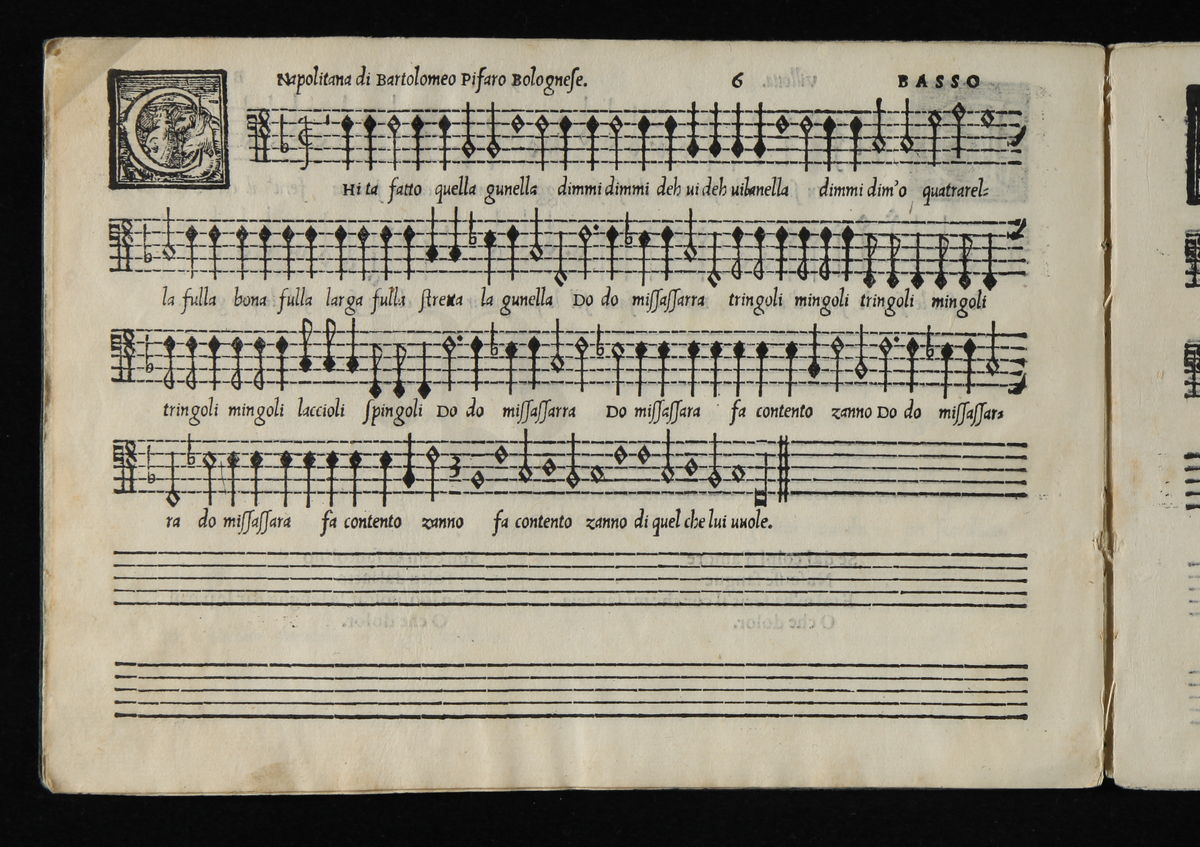 Napolitana di Bartolomeo Pifaro Bolognese. 6 BASSO
CHi ta fatto quella gunella dimmi dimmi deh ui deh uilanella dimmi dim'o quatrarel-
la fulla bona fulla larga fulla stretta la gunella Do do missassarra tringoli mingoli tringoli mingoli
tringoli mingoli laccioli spingoli Do do missassarra Do missassara fa contento zanno Do do missassar-
ra do missassara fa contento zanno fa contento zanno di quel che lui uuole.